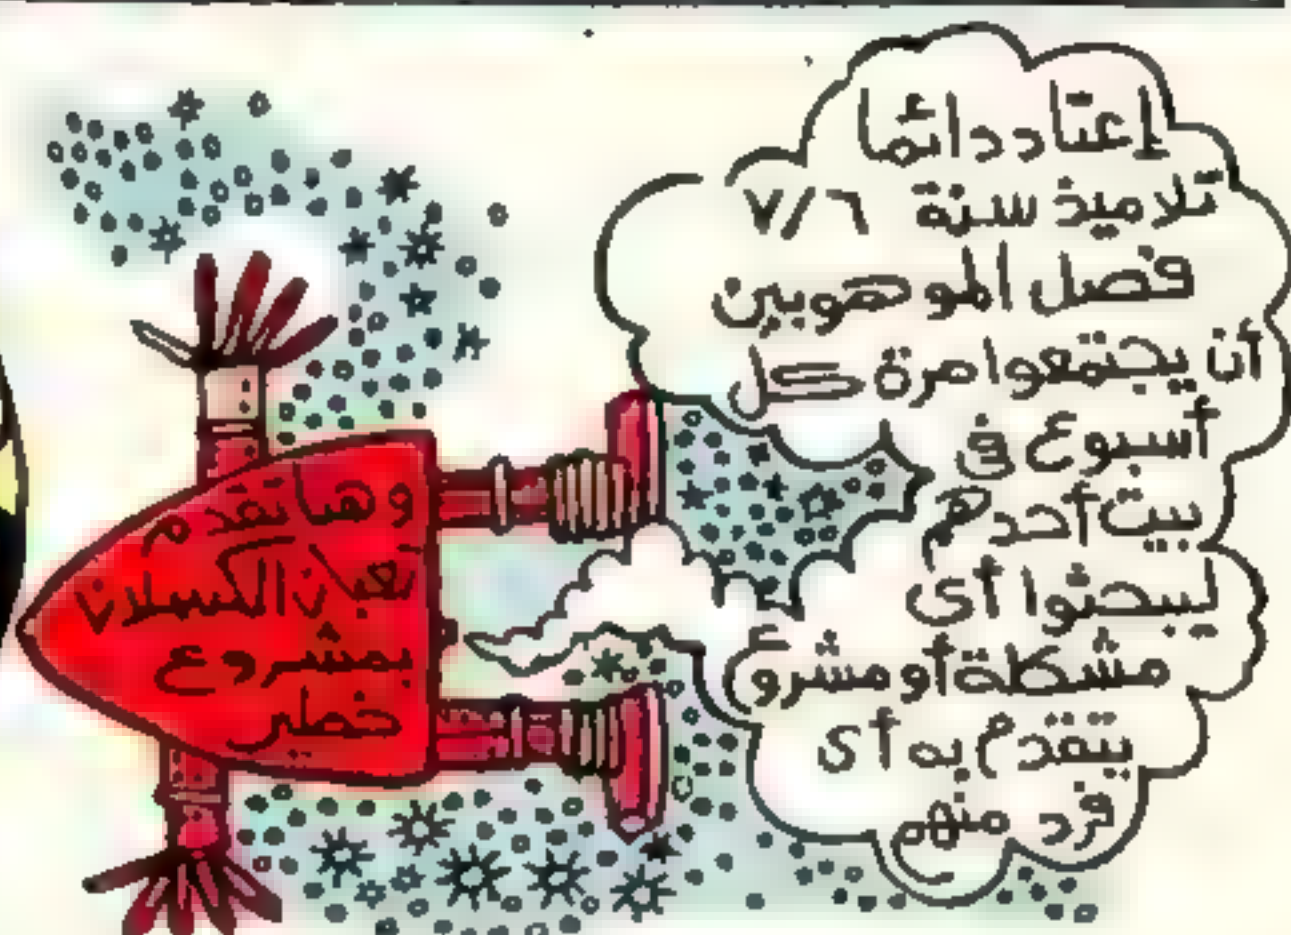 إعتاد دائما
تلاميذ سنة ٧/٦
فصل الموهوبين
أن يجتمعوا مرة كل
أسبوع فى
بيت أحدهم
ليبحثوا أى
مشكلة أو مشروع
يتقدم به أى
فرد منهم
وهنا تقدم
تعبان الكسلان
بمشروع
خطير